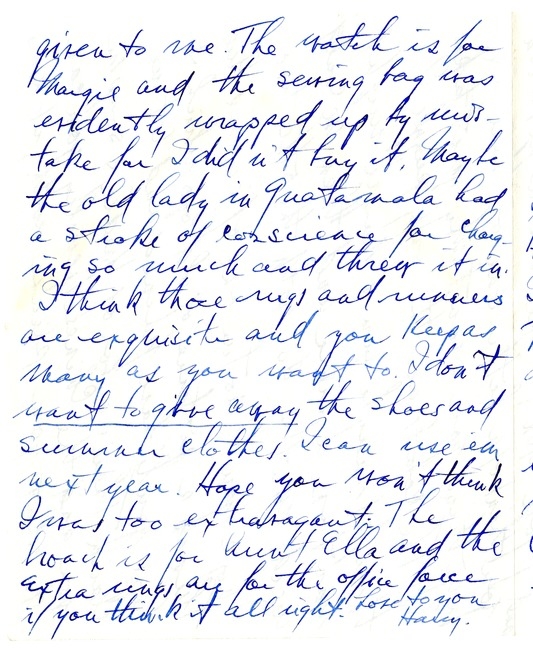 given to me. The watch is for
Margie and the sewing bag was
evidently wrapped up by mis-
take for I did n't buy it. Maybe
the old lady in Guatamala had
a stroke of conscience for charg-
ing so much and threw it in.
I think those rugs and runners
are exquisite and you keep as
many as you want to. I don't
want to give away the shoes and
summer clothes. I can use 'em
next year. Hope you won't think
I was too extravagant. The
broach is for Aunt Ella and the
extra rings are for the office force
if you think it all right. Love to you
Harry.